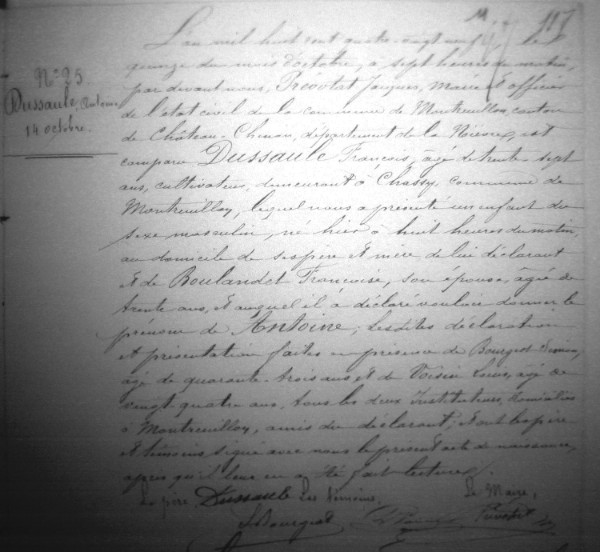 117
N° 25.
Dussaule, Antoine
14 octobre.
L'an mil huit cent quatre-vingt neuf, le
quinze du mois d'octobre, à sept heures du matin,
par devant nous, Prévotat Jacques, Maire et officier
de l'état civil de la commune de Montreuillon, canton
de Château-Chinon, département de la Nièvre, est
comparu Dussaule François, âgé de trente sept
ans, cultivateur, demeurant à Chassy, commune de
Montreuillon, lequel nous a présenté un enfant du
sexe masculin, né hier à huit heures du matin,
au domicile de ses père et mère de lui déclarant
et de Boulandet Françoise, son épouse, âgée de
trente ans, et auquel il a déclaré vouloir donner le
prénom de Antoine; lesdites déclaration
et présentation faites en présence de Bourgeot
âgé de quarante-trois ans et de Voisin Louis, âgé de
vingt quatre ans, tous les deux instituteurs, domiciliés
à Montreuillon, amis du déclarant; et ont les père
et témoins signé avec nous le présent acte de naissance,
après qu'il leur en a été fait lecture.
Le père, Dussaule Les témoins, Le Maire,
Bourgeot Prévotat